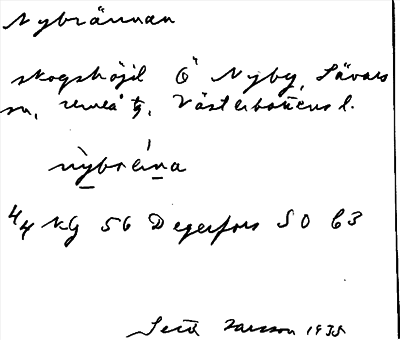 Nybrännan
skogshöjd Ö Nyby, Sävars
sn, Umeå tg, Västerbottens l.
nỳbreína
4/4 NG 56 Degerfors SO b3
Larsson 1935